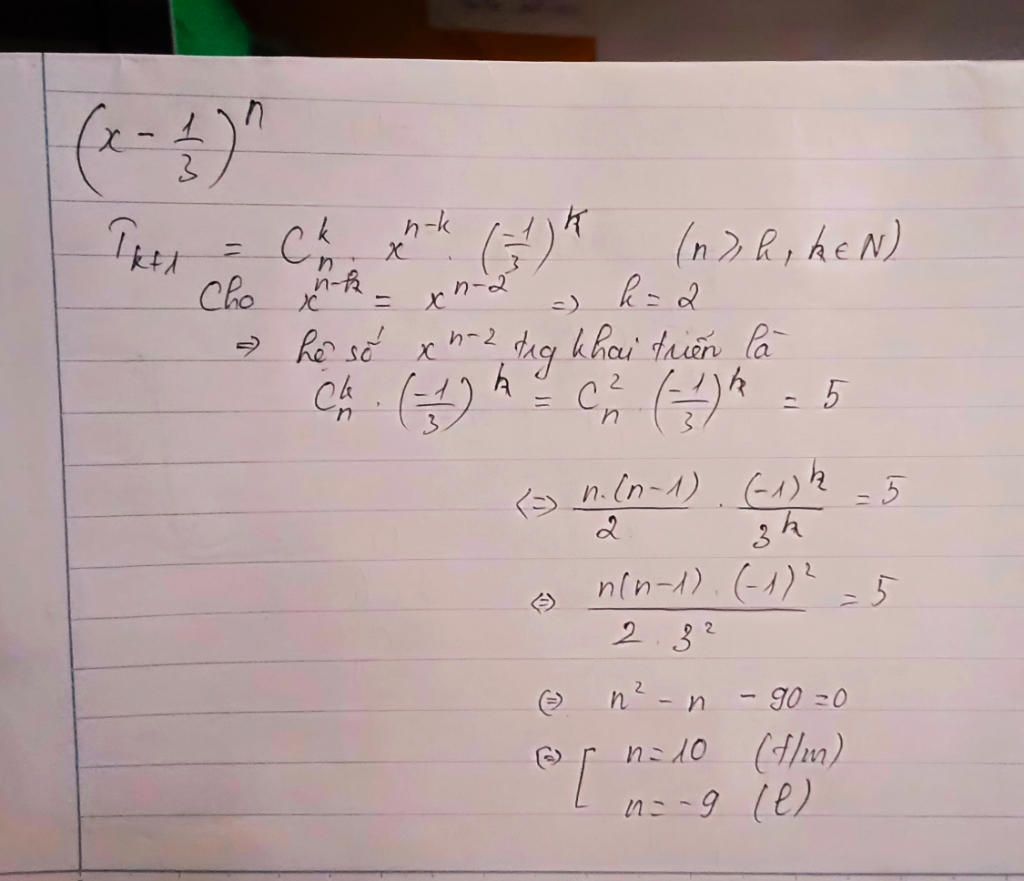 (x - 1/3)^n
T_{k+1} = C_n^k . x^{n-k} . (-1/3)^k (n ≥ k, k ∈ N)
Cho x^{n-k} = x^{n-2} => k = 2
=> hệ số x^{n-2} trg khai triển là
C_n^k . (-1/3)^k = C_n^2 . (-1/3)^k = 5
<=> n.(n-1)/2 . (-1)^k/3^k = 5
<=> n(n-1) . (-1)^2 / 2 . 3^2 = 5
<=> n^2 - n - 90 = 0
<=> [ n = 10 (t/m)
n = -9 (l)